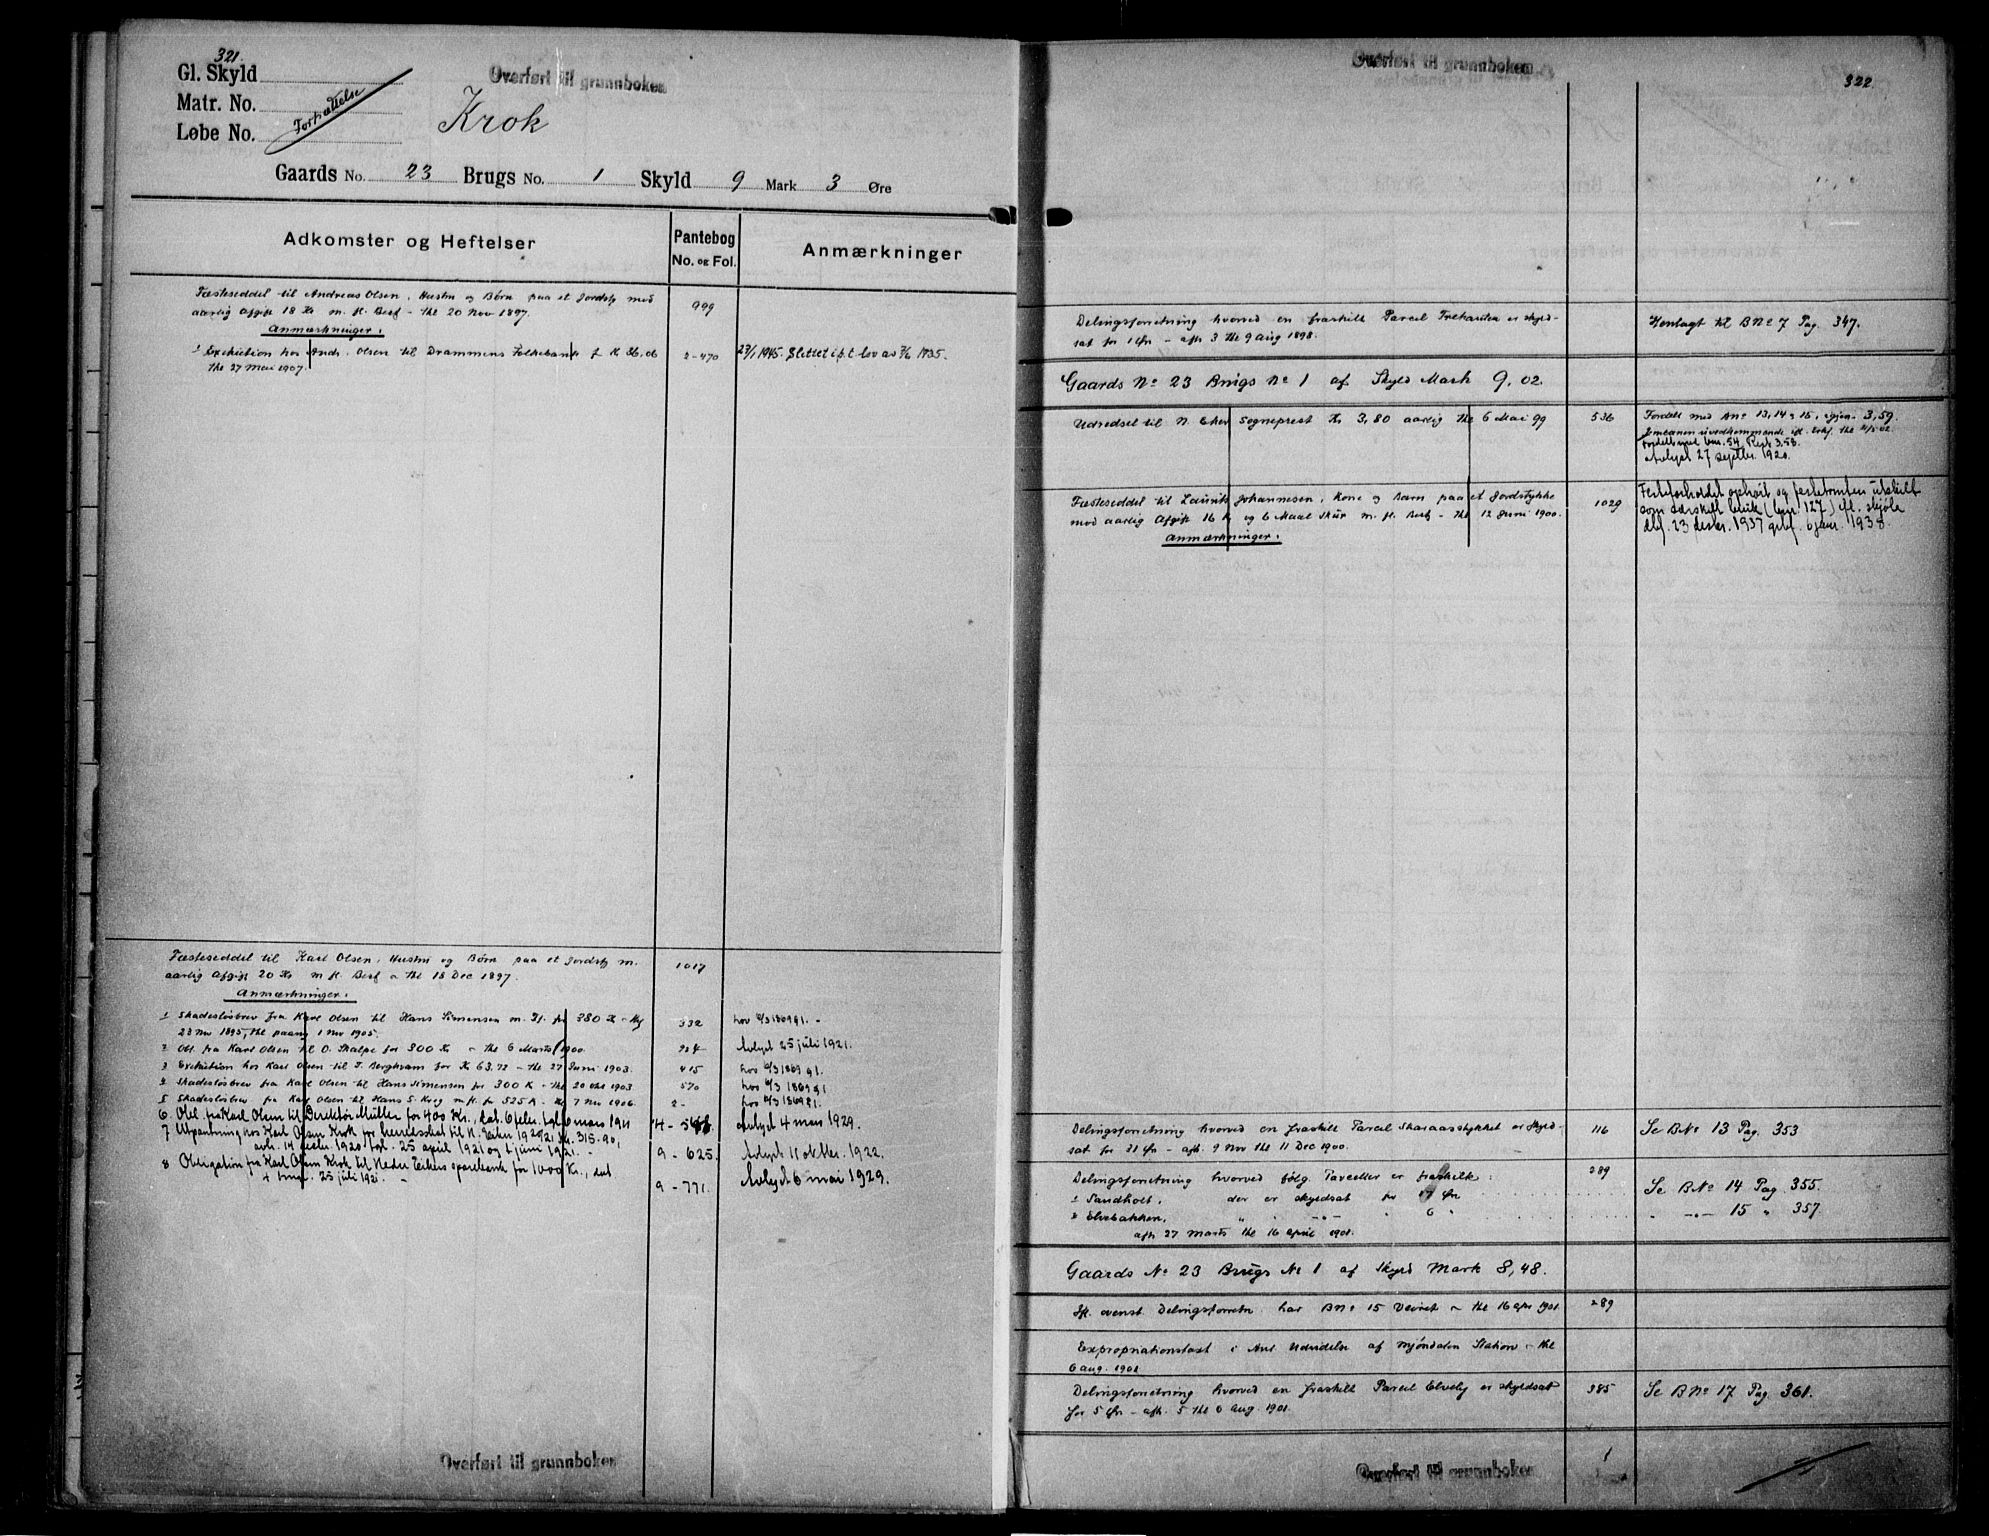 321.
Gl. Skyld
Matr. No.
Løbe No.
Fortsættelse
Overført til grunnboken
Krok
Gaards No. 23 Brugs No. 1 Skyld 9 Mark 3 Øre
Adkomster og Heftelser
Pantebog No. og Fol.
Anmærkninger
Fæsteseddel til Andreas Olsen, Hustru og Børn paa et Jordst. med 999
aarlig Afgift 18 Kr m. fl. Besf – thl 20 Nov 1897.
Anmærkninger.
1 Exekution hos Andr. Olsen til Drammens Folkebank f. K 36,06 2-470 23/1 1945. Slettet i.p.t. lov av 7/6 1935.
thl 27 Mai 1907.
Fæsteseddel til Karl Olsen, Hustru og Børn paa et Jordst. m. 1017
aarlig Afgift 20 Kr m fl. Besf – thl 18 Dec 1897.
Anmærkninger.
1 Skadesløsbrev fra Karl Olsen til Hans Simensen for 380 K 332 Lov 6/3 1869 § 1.
23 Nov 1895, thl paany 1 Nov 1905.
2 Obl. fra Karl Olsen til O. Skalpe for 300 Kr – thl 6 Marts 1900. 924 Avlyst 25 juli 1921.
3 Exekution hos Karl Olsen til T. Berghvam for Kr 63,72 – thl 27 Juni 1903. 415 Lov 6/3 1869 § 1
4 Skadesløsbrev fra Karl Olsen til Hans Simensen for 300 K – thl 20 Okt 1903. 570 Lov 6/3 1869 § 1
5 Skadesløsbrev fra Karl Olsen til Hans S. Krog m. fl. for 525 K – thl 7 Nov 1906. 2- Lov 6/3 1869 § 1.
6. Obl. fra Karl Olsen til Direktør Müller for 400 Kr., dat. 6 febr. tgl. 6 mars 1911 Avlyst 4 mars 1929.
7 Utpantning hos Karl Olsen Krok for herredsskat til N. Eiker 1920/21 Kr. 315.90,
avh. 14 decbr. 1920 tgl. 25 april 1921 og 1 juni 1921. – 9 – 625. Avlyst 11 oktbr. 1922.
8 Obligation fra Karl Olsen Krok til Nedre Eikers sparebank for 1000 Kr., dat
tingl. 25 juli 1921. 9 – 771. Avlyst 6 mai 1929.
Overført til grunnboken
Overført til grunnboken
322
Delingsforretning hvorved en fraskilt Parcel Trehaugen er skyld-
sat for 1 Øre – afh. 3 thl 9 Aug 1898. Henlagt til B No 7 Pag. 347.
Gaards No 23 Brugs No 1 af Skyld Mark 9.02.
Udredsel til N. Eker Sogneprest Kr 3,80 aarlig thl 6 Mai 99 536 Fordelt med Bno 13, 14 & 15, igjen 3,59.
Fordelt med bnr. 54 Rest 3.53.
Avlyst 27 septbr. 1920.
Fæsteseddel til Lauritz Johannesen, Kone og Barn paa et Jordstykke 1029
med aarlig Afgift 16 K og 6 Maal Skur m. fl. Besf – thl 12 Juni 1900.
Anmærkninger.
Festeforholdet ophørt og festetomten utskilt
som særskilt bruk (bnr. 127) ifl. skjøte
dat. 23 desbr. 1937 tgl. 6 jan. 1938.
Delingsforretning hvorved en fraskilt Parcel Skaraasstykket er Skyld- 116 Se B No 13 Pag. 353
sat for 31 Øre – afh. 9 Nov thl 11 Dec 1900.
Delingsforretning hvorved følg. Parceller er fraskilt: 289
1 Sandholt, der er skyldsat for 17 Øre Se B No 14 Pag 355.
2 Elvebakken, " " –"– " 6 " " –"– 15 " 357
afh. 27 Marts thl 16 April 1901.
Gaards No 23 Brugs No 1 af Skyld Mark 8,48.
Ifl. ovenst. Delingsforretn. har B No 15 Veiret – thl 16 Apr 1901 289
Expropriationstaxt i Anl Udvidelse af Mjøndalen Station – thl
6 Aug. 1901
Delingsforretning hvorved en fraskilt Parcel Elvely er skyldsat 385 Se B No 17 Pag. 361.
for 5 Øre – afh. 5 thl 6 Aug. 1901.
Overført til grunnboken